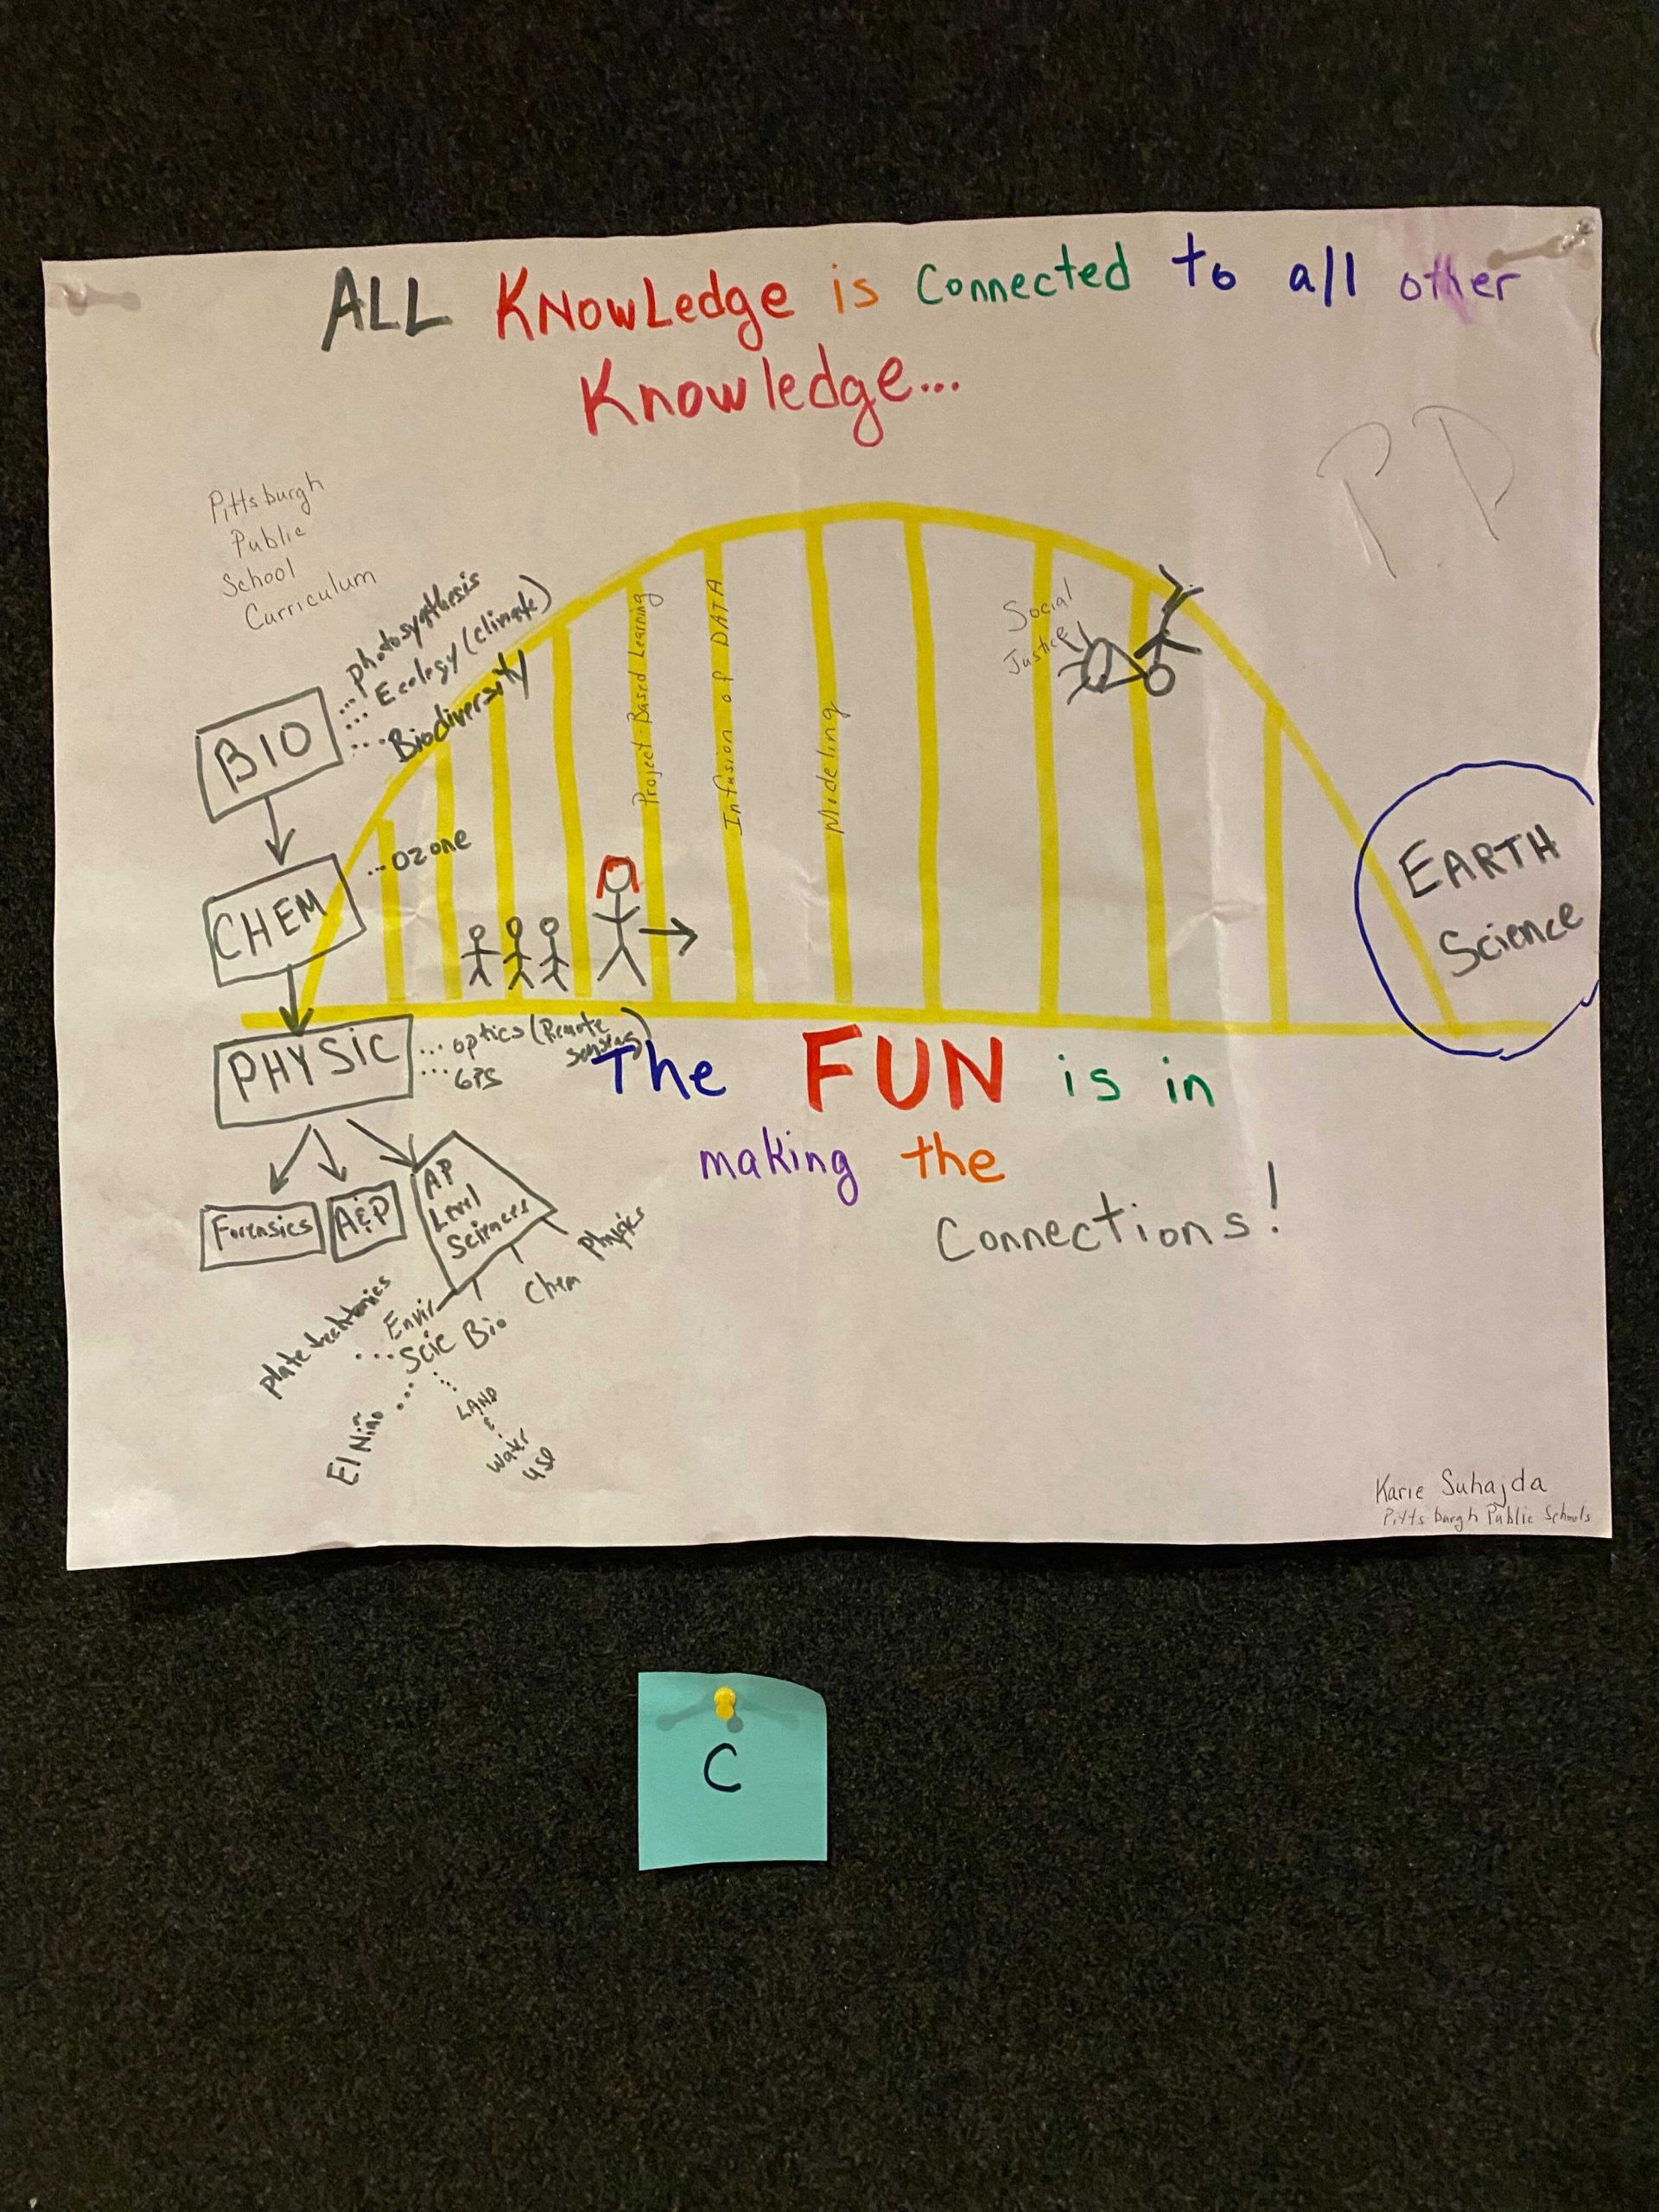 ALL KNowLedge is Connected to all other
Knowledge...
PD
Pittsburgh
Public
School
Curriculum
... photosythesis
... Ecology (climate)
... Biodiversity
BIO
... Ozone
CHEM
PHYSIC
... optics (Remote
... GPS
Project-Based Learning
Infusion of DATA
Modeling
Social
Justice
EARTH
Science
The FUN is in
making the
Connections!
Forensics
A&P
AP
Level
Sciences
Physics
Chem
Bio
Envir
Scic
El Niño
LAND
&
Water
use
Karie Suhajda
Pittsburgh Public Schools
C